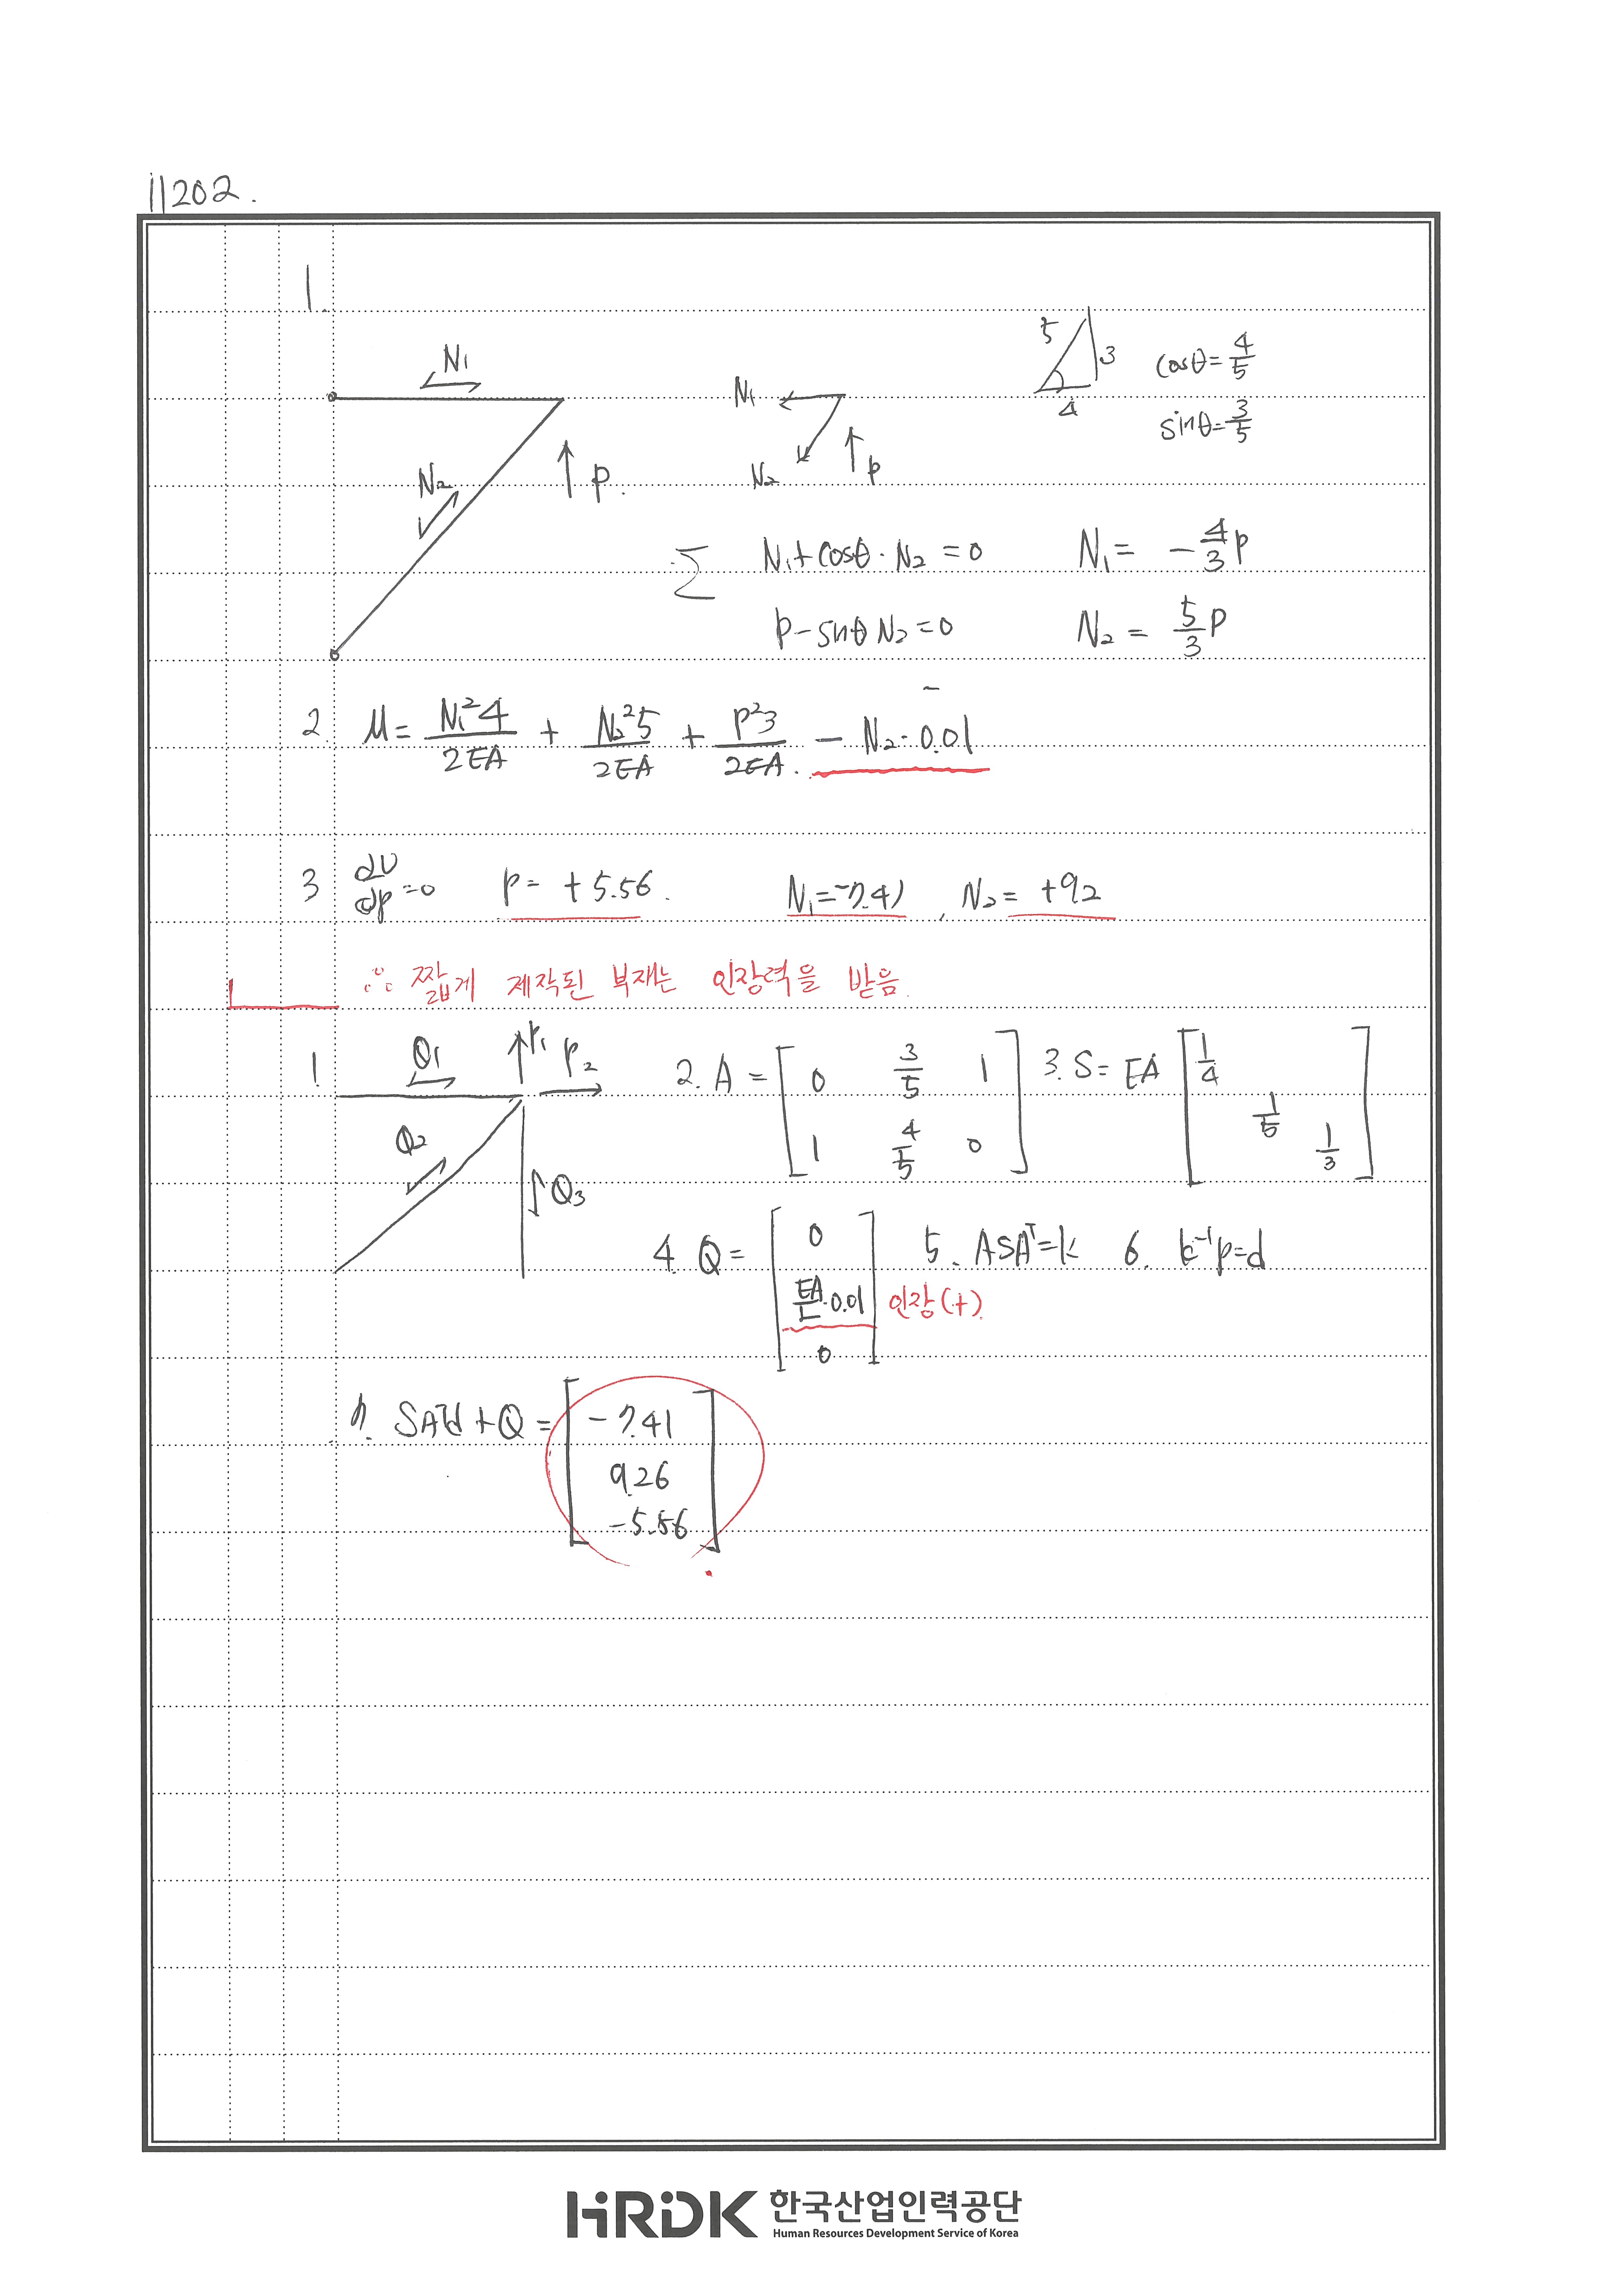 11202.
1.
N₁
N₂
P.
N₁
N₂
P
5
3
4
cosθ = 4/5
sinθ = 3/5
Σ N₁ + cosθ · N₂ = 0 N₁ = -4/3 P
P - sinθ N₂ = 0 N₂ = 5/3 P
2. U = N₁²4/2EA + N₂²5/2EA + P²3/2EA - N₂ · 0.01
3 dU/dp = 0 P = +5.56. N₁ = -7.41, N₂ = +9.2
∴ 짧게 제작된 부재는 인장력을 받음.
1.
Q₁
P₁
P₂
Q₂
Q₃
2. A = [0 3/5 1
1 4/5 0]
3. S = EA [1/4
1/5
1/3]
4. Q = [0
EA/L · 0.01
0]
인장(+)
5. ASAᵀ = k 6. k⁻¹p = d
7. SAᵀd + Q = [-7.41
9.26
-5.56]
HRDK 한국산업인력공단
Human Resources Development Service of Korea